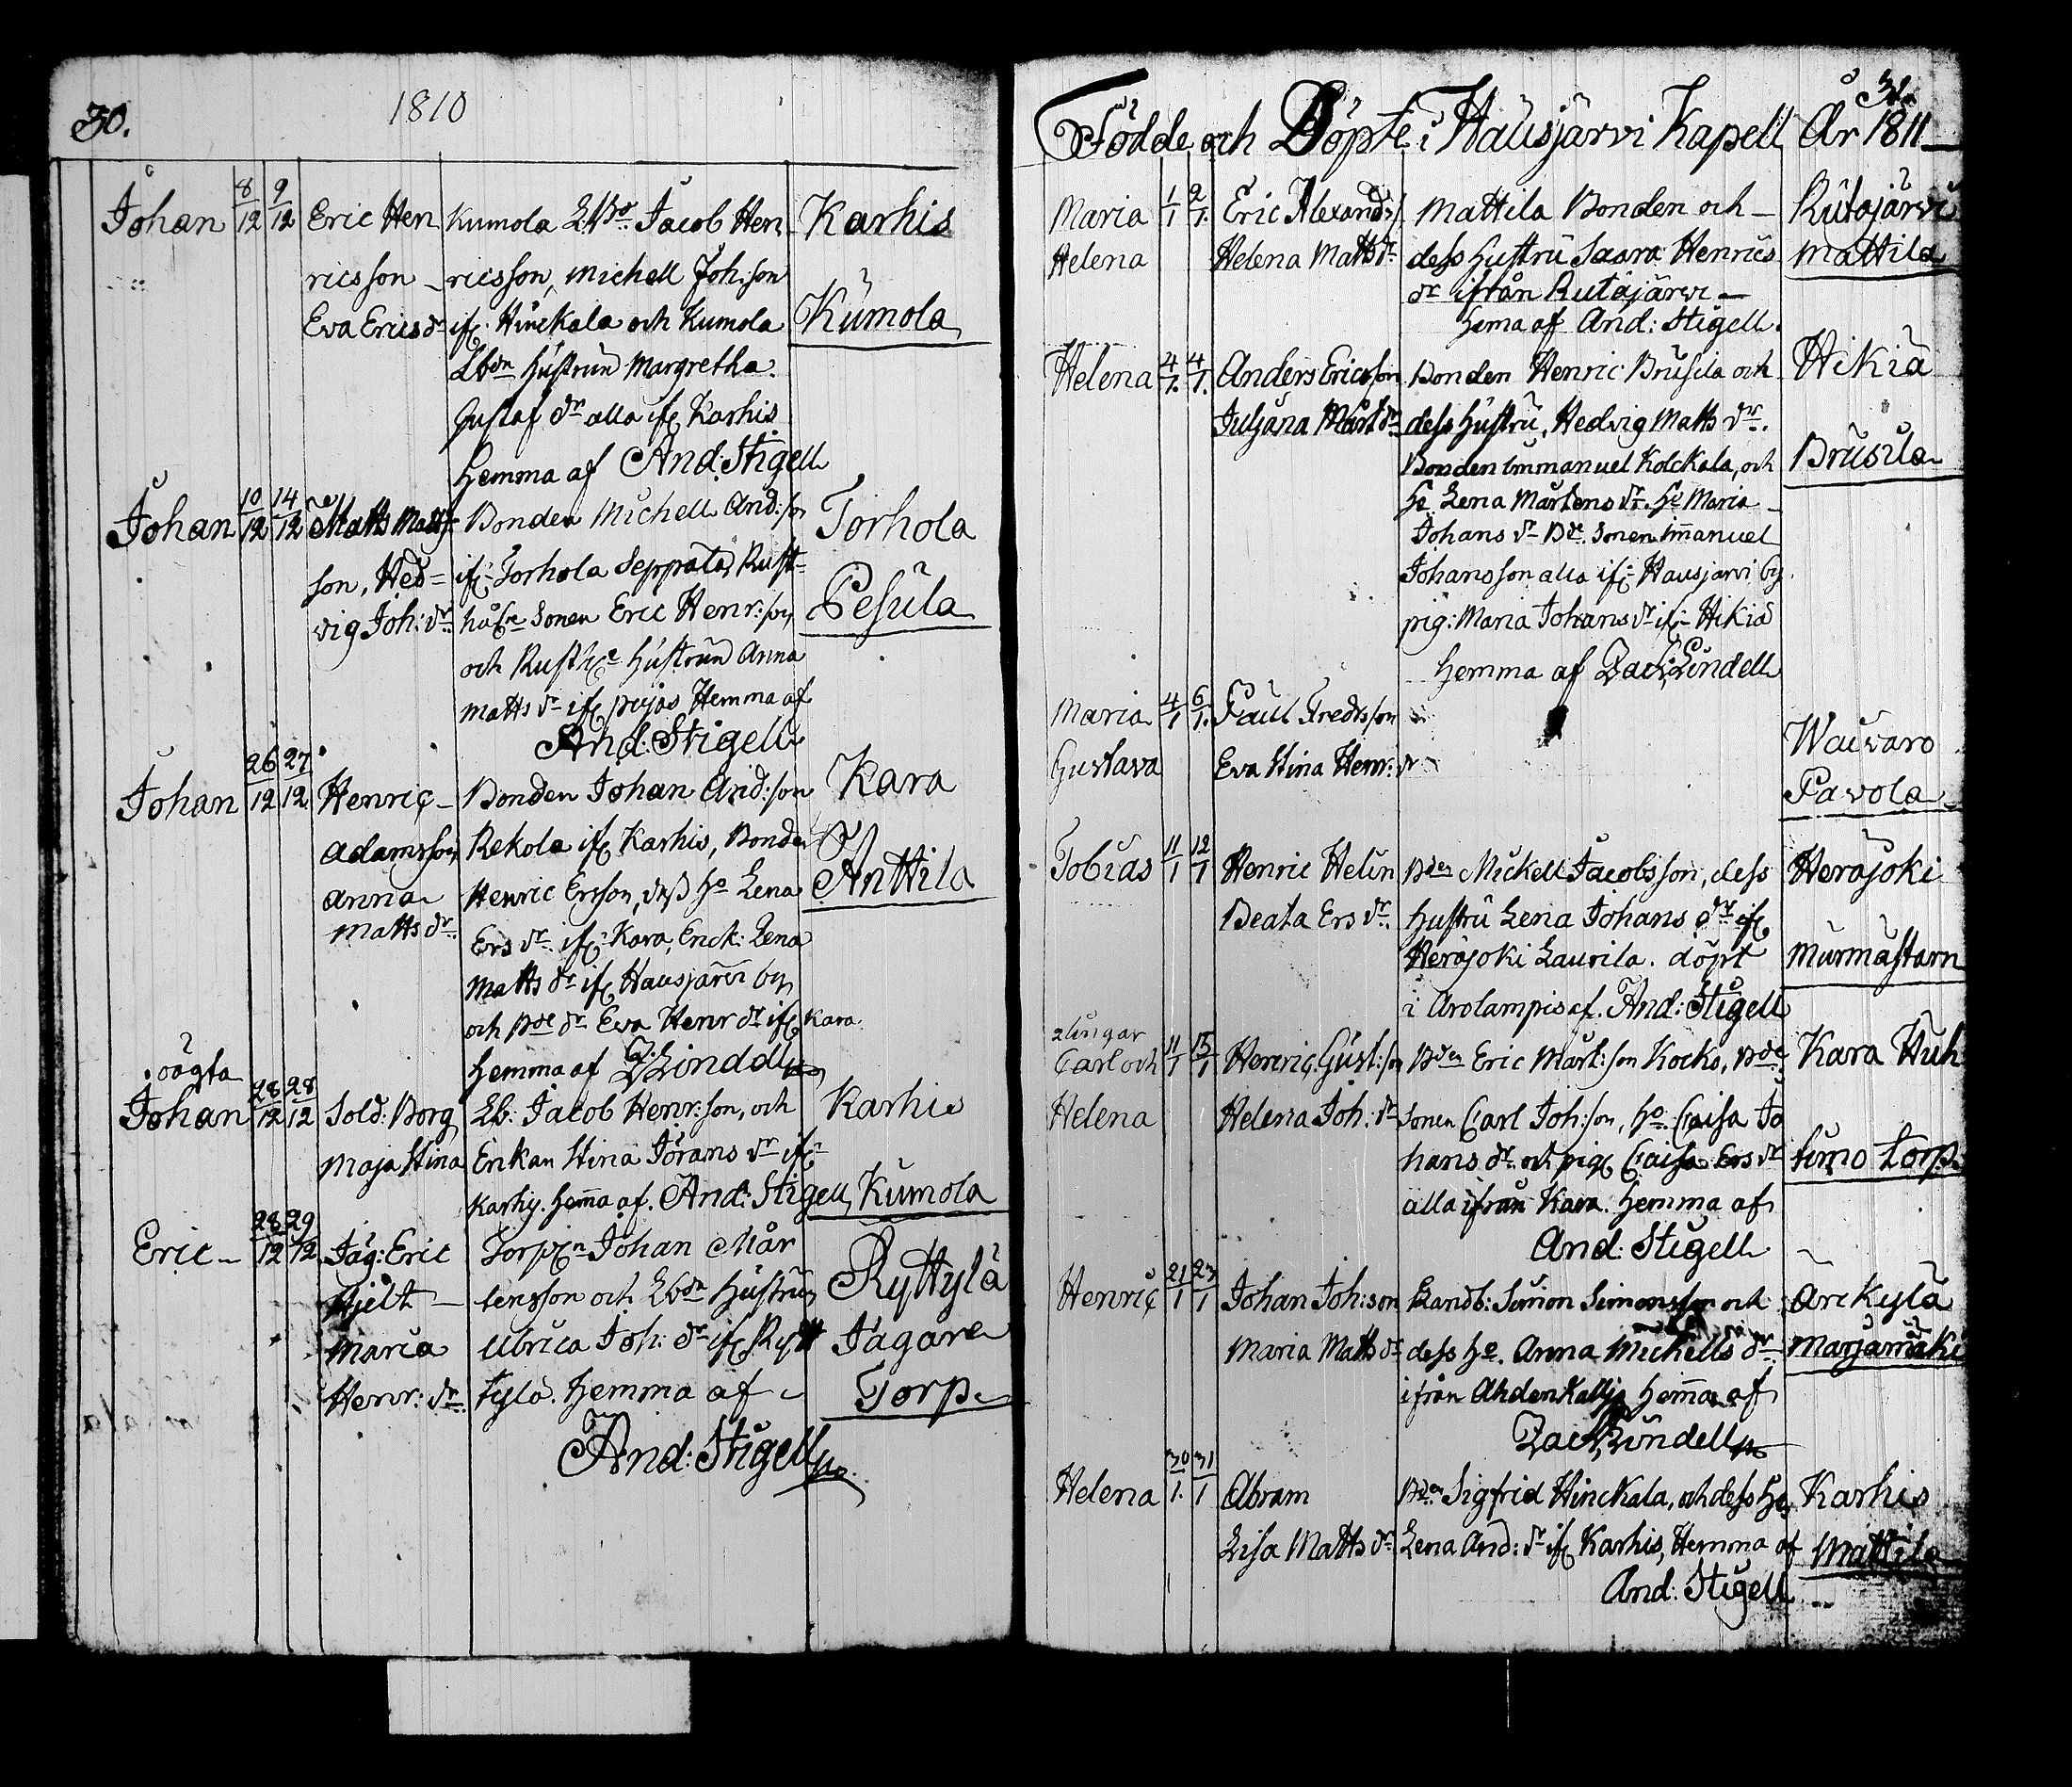 30.
1810
Johan 8/12 9/12 Eric Hen Kumola Jacob Hen Karhis
ricsson ricsson, Michell Joh:son
Eva Erics dr ifr Hinckala och Kumola Kumola
Lbdn Hustrun Margretha
Gustaf dr alla ifr Karhis
Hemma af And: Stigell
Johan 10/12 14/12 Matts Matts Bonden Michell And:son Torhola
son, Hed= ifr Torhola Seppälä, Rust=
vig Joh: dr hå sonen Eric Henr:son, Pesula
och hustrun Anna
Matts dr ifr Hemma af
And: Stigell
Johan 26/12 27/12 Henric Bonden Johan And:son Kara
Adamsson, Rekola ifr Karhis, Bonden
Anna Henric Ersson, dess ho Lena Anttila
Matts dr Ers dr ifr Kara, Enck: Lena
Matts dr ifr Hausjärvi by,
och Bde dr Eva Henr dr ifr Kara
Hemma af Z: Lindell
oägta
Johan 28/12 28/12 Sold: Borg Lb: Jacob Henr:son, och Karhis
Maja Stina Enkan Stina Jörans dr ifr
Karhis. Hemma af. And: Stigell Kumola
Eric 28/12 29/12 Jäg: Eric Torpn Johan Mår Ryttylä
Hjelt tensson och Lbdn Hustrun
Maria Ulrica Joh: dr ifr Rytt Jägare
Henr: dr tylä. Hemma af Torp
And: Stigell
31.
Födde och Döpte i Hausjärvi Kapell År 1811
Maria 1/1 2/1 Eric Alexands Mattila Bonden och Rutajärvi
Helena Helena Matts dr dess Hustru Saara Henrics Mattila
dr ifrån Rutajärvi
Hema af And: Stigell.
Helena 4/1 4/1 Anders Ericsson Bonden Henric Brusila och Hikiä
Juljana Mårt dr dess Hustru, Hedvig Matts dr.
Bonden Immanuel Kolckala, och Brusila
Ho Lena Mårtens dr. Ho Maria
Johans dr Bde Sonen Immanuel
Johansson alla ifr Hausjärvi by.
pig: Maria Johans dr ifr Hikiä
Hemma af Zach: Lindell
Maria 4/1 6/1 Paul Fredsson Waivaro
Gustava Eva Stina Henr: dr Pavola
Tobias 11/1 12/1 Henric Helin Bden Mickell Jacobsson, dess Heräjoki
Beata Ers dr. Hustru Lena Johans dr ifr
Heräjoki Laurila. döpt Murmästarn
i Arolampi af. And: Stigell
2lingar
Carl och 11/1 13/1 Henric Gust:son Bden Eric Mårt:son Kocko, Bde Kara Huh
Helena Helena Joh: dr sonen Carl Joh:son, ho. Caisa Jo
hans dr. och pig Caisa Ers dr timo torp
alla ifrån Kara. Hemma af
And: Stigell
Henric 21/1 23/1 Johan Joh:son Landb: Simon Simonsson och Arckylä
Maria Matts dr dess ho. Anna Michells dr. Marjamäki
ifrån Ahdenkallio Hemma af
Zach: Lindell
Helena 30/1 31/1 Abram Bden Sigfrid Hinckala, och dess ho Karhis
Lisa Matts dr. Lena And: dr ifr Karhis, Hemma af Mattila
And: Stigell